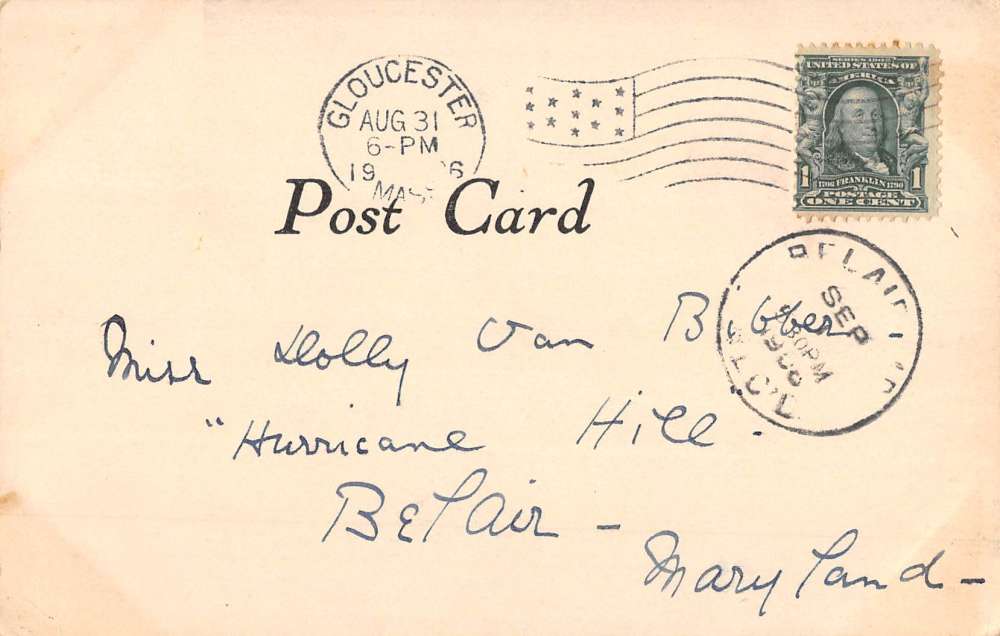 GLOUCESTER
AUG 31
6-PM
19 6
MASS
SERIES 1902
UNITED STATES OF
AMERICA
1 1706 FRANKLIN 1790 1
POSTAGE
ONE CENT
Post Card
BELAIR
SEP
30PM
REC'D
Miss Dolly Van Bibber -
"Hurricane Hill" -
Bel Air -
Maryland -